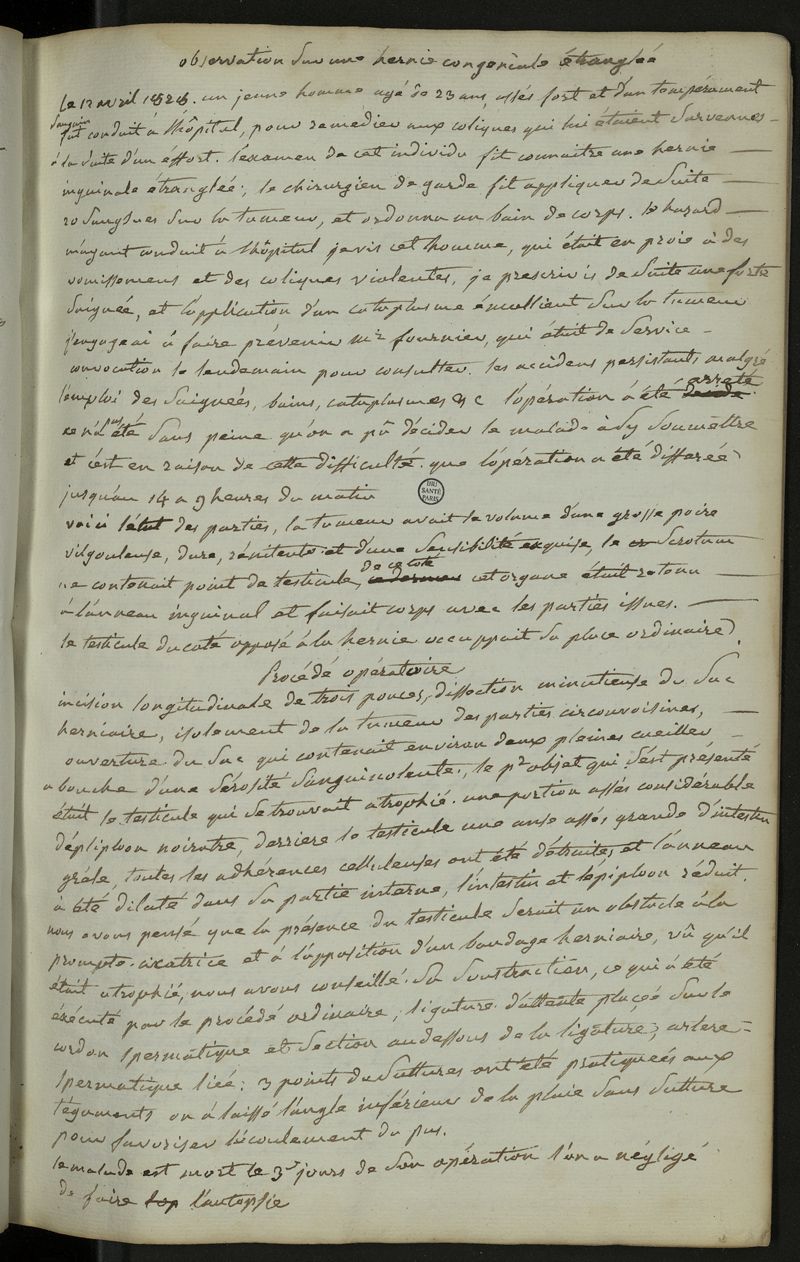 observation sur une hernie congeniale étranglée
Le 12 avril 1828. un jeune homme agé de 23 ans, assés fort et d'un tempérament
sanguin
fut conduit à l'hôpital, pour remedier aux coliques qui lui étaient survenues -
à la suite d'un éffort. l'examen de cet individu fit connaitre une hernie —
inguinale étranglée; le chirurgien de garde fit appliquer de suite —
20 sangsues sur la tumeur, et ordonna un bain de corps. le hazard —
m'ayant conduit à l'hôpital je vis cet homme, qui était en proie à des
vomissemens et des coliques violentes, je prescrivis de suite une forte
saignée, et l'application d'un cataplasme émollient sur la tumeur
j'engageai à faire prévenir mr fournier, qui était de service -
convocation le lendemain pour consulter. les accidens persistants malgré
l'emploi des saigneés, bains, cataplasmes &c l'opération a été arreté
ce n'a pas été sans peine qu'on a pû décider le malade à s'y soumettre
et c'est en raison de cette difficulté que l'opération a été differeé
jusqu'au 14 a 9 heures du matin
BIU SANTÉ PARIS
voici l'état des parties, la tumeur avait le volume d'une grosse poire
vilgouleuse, dure, rénitente et d'une sensibilité exquise, le scrotum
ne contenait point de testicule, de ce coté cet organe était retenu —
à l'anneau inguinal et faisait corps avec les parties issues. —
le testicule du coté opposé à la hernie occuppait sa place ordinaire.
Procédé opératoire
incision longitudinale de trois pouces, dissection minutieuse du sac
herniaire, isolement de la tumeur des parties circonvoisines, —
ouverture du sac qui contenait environ deux pleines cueiller -
a bouche d'une sérosité sanguinolente, le pr objet qui s'est présenté
était le testicule qui se trouvait atrophié. une portion assés considérable
d'épliploon noiratre, derriere le testicule une anse assés grande d'intestin
grêle, toutes les adhérences celluleuses ont été détruites et l'anneau
a été dilaté dans sa partie interne, l'intestin et l'épiploon réduit.
nous avons pensé que la présence du testicule serait un obstacle à la
prompte cicatrice et à l'apposition d'un bandage herniaire, vû qu'il
était atrophié, nous avons conseillé sa soustraction, ce qui a été
éxécuté par le procédé ordinaire, ligature d'attente placée sur le
cordon spermatique et section au dessous de la ligature; artere -
spermatique liée; 3 points de suttures ont été pratiqueés aux
téguments on a laissé l'angle inférieur de la plaie sans sutture
pour favoriser l'écoulement du pus.
le malade est mort le 3e jours de son opération l'on a négligé
de faire l'autopsie